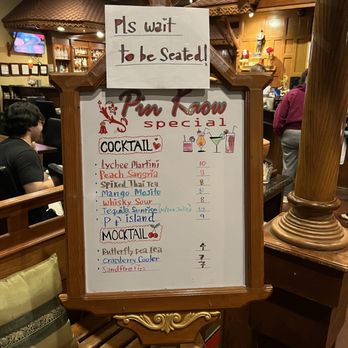 Pls wait
to be Seated!
Pin Kaow
special
COCKTAIL
Lychee Martini 10
Peach Sangria 9
Spiked Thai Tea 8
Mango Mojito 8
Whisky Sour 8
Tequila Sunrise
PP island 9
MOCKTAIL
Butterfly pea Tea 4
Cranberry Cooler 7
7